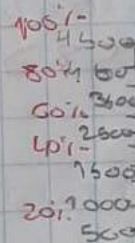 100%
4500
80%
60%
3600
40%
2600
1500
20%
1000
500